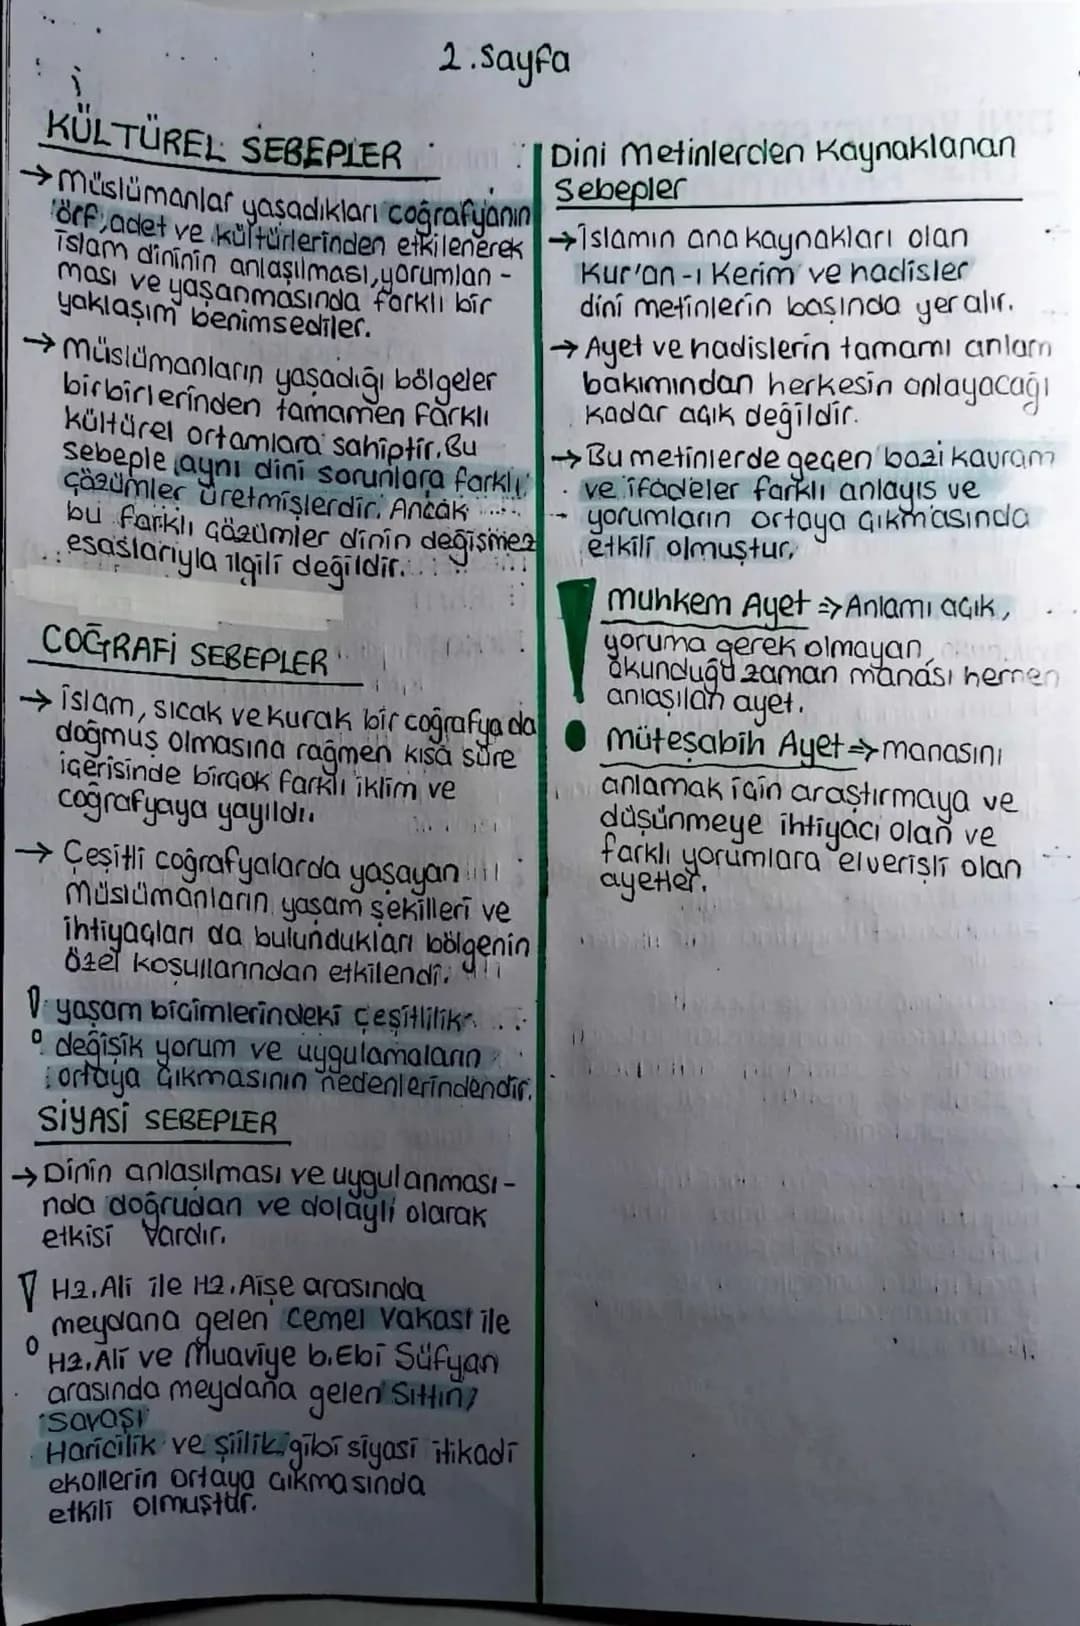 2.Sayfa
KÜLTÜREL SEBEPLER
→Müslümanlar yaşadıkları coğrafyanın
örf, adet ve kültürlerinden etkilenerek
islam dininin anlaşılması, yorumlan-
ması ve yaşanmasında farklı bir
yaklaşım benimsediler.
→Müslümanların yaşadığı bölgeler
birbirlerinden tamamen farklı
kültürel ortamlara sahiptir. Bu
sebeple aynı dini sorunlara farklı
çözümler üretmişlerdir. Ancak
bu farklı çözümler dinin değişmez
esaslarıyla ilgili değildir.
COĞRAFİ SEBEPLER
→ islam, sıcak ve kurak bir coğrafya da
doğmuş olmasına rağmen kısa süre
içerisinde birçok farklı iklim ve
coğrafyaya yayıldı.
→ Çeşitli coğrafyalarda yaşayan
Müslümanların yaşam şekilleri ve
ihtiyaçları da bulundukları bölgenin
özel koşullarından etkilendi.
! yaşam biçimlerindeki çeşitlilik
değişik yorum ve uygulamaların
ortaya çıkmasının nedenlerindendir.
SİYASİ SEBEPLER
→Dinin anlaşılması ve uygulanması-
nda doğrudan ve dolaylı olarak
etkisi vardır.
! Hz. Ali ile Hz. Aişe arasında
meydana gelen Cemel Vakası ile
Hz. Ali ve Muaviye b. Ebi Süfyan
arasında meydana gelen Sıffin
Savaşı
Haricilik ve şiilik gibi siyasi itikadi
ekollerin ortaya çıkmasında
etkili olmuştur.
Dini Metinlerden Kaynaklanan
Sebepler
→islamın ana kaynakları olan
Kur'an-ı Kerim ve hadisler
dini metinlerin başında yer alır.
→ Ayet ve hadislerin tamamı anlam
bakımından herkesin anlayacağı
kadar açık değildir.
→Bu metinlerde geçen bazı kavram
ve ifadeler farklı anlayış ve
yorumların ortaya çıkmasında
etkili olmuştur.
! Muhkem Ayet ⇒ Anlamı açık,
yoruma gerek olmayan,
okunduğu zaman manası hemen
anlaşılan ayet.
Müteşabih Ayet ⇒ manasını
anlamak için araştırmaya ve
düşünmeye ihtiyacı olan ve
farklı yorumlara elverişli olan
ayetler.